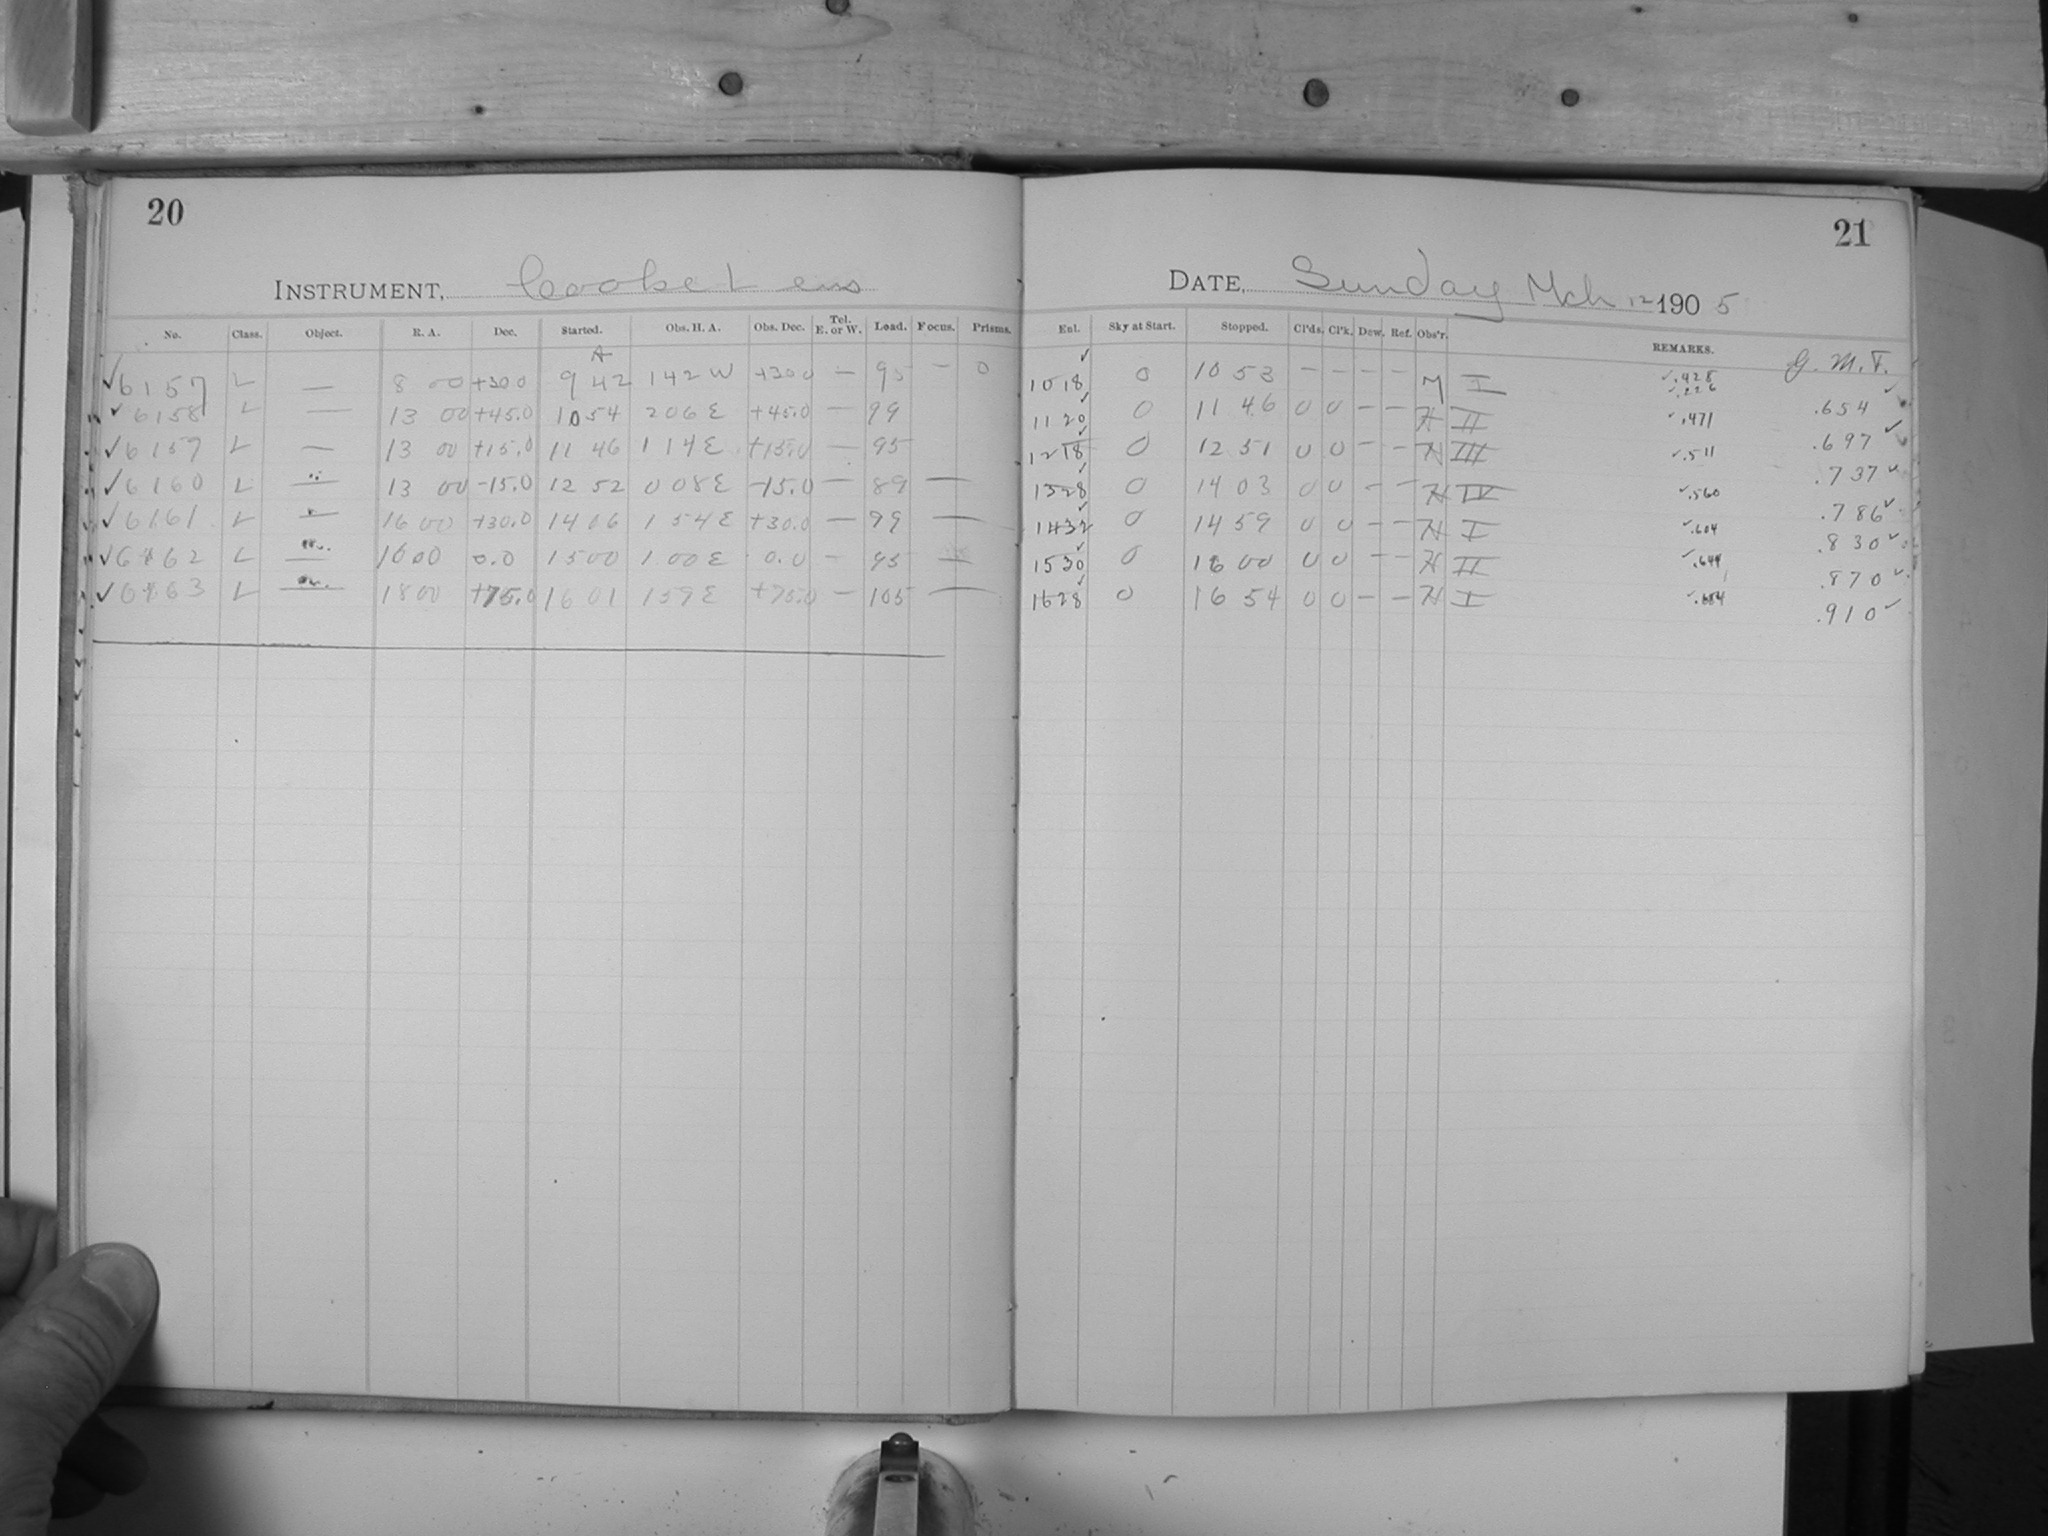 20
INSTRUMENT, Cooke Lens
No. Class. Object. R. A. Dec. Started. Obs. H. A. Obs. Dec. Tel. E. or W. Load. Focus. Prisms.
A
✓6157 L — 8 00 +30 0 9 42 1 42 W +30 0 — 95 — 0
✓6158 L — 13 00 +45.0 10 54 2 06 E +45.0 — 99
✓6159 L — 13 00 +15.0 11 46 1 14 E +15.0 — 95
✓6160 L — 13 00 -15.0 12 52 0 08 E -15.0 — 89 —
✓6161 L — 16 00 +30.0 14 06 1 54 E +30.0 — 99 —
✓6162 L — 16 00 0.0 15 00 1 00 E 0.0 — 95 —
✓6163 L — 18 00 +75.0 16 01 1 59 E +75.0 — 105 —
21
DATE, Sunday Mch 12 1905
Ent. Sky at Start. Stopped. Cl'ds. Cl'k. Dew. Ref. Obs'r. REMARKS. G. M. T.
10 18 0 10 53 — — — — M I .428 .226 .654 ✓
11 20 0 11 46 0 0 — — H II .471 .697 ✓
12 18 0 12 51 0 0 — — H III .511 .737 ✓
13 28 0 14 03 0 0 — — H IV .560 .786 ✓
14 32 0 14 59 0 0 — — H I .604 .830 ✓
15 30 0 16 00 0 0 — — H II .644 .870 ✓
16 28 0 16 54 0 0 — — H I .684 .910 ✓